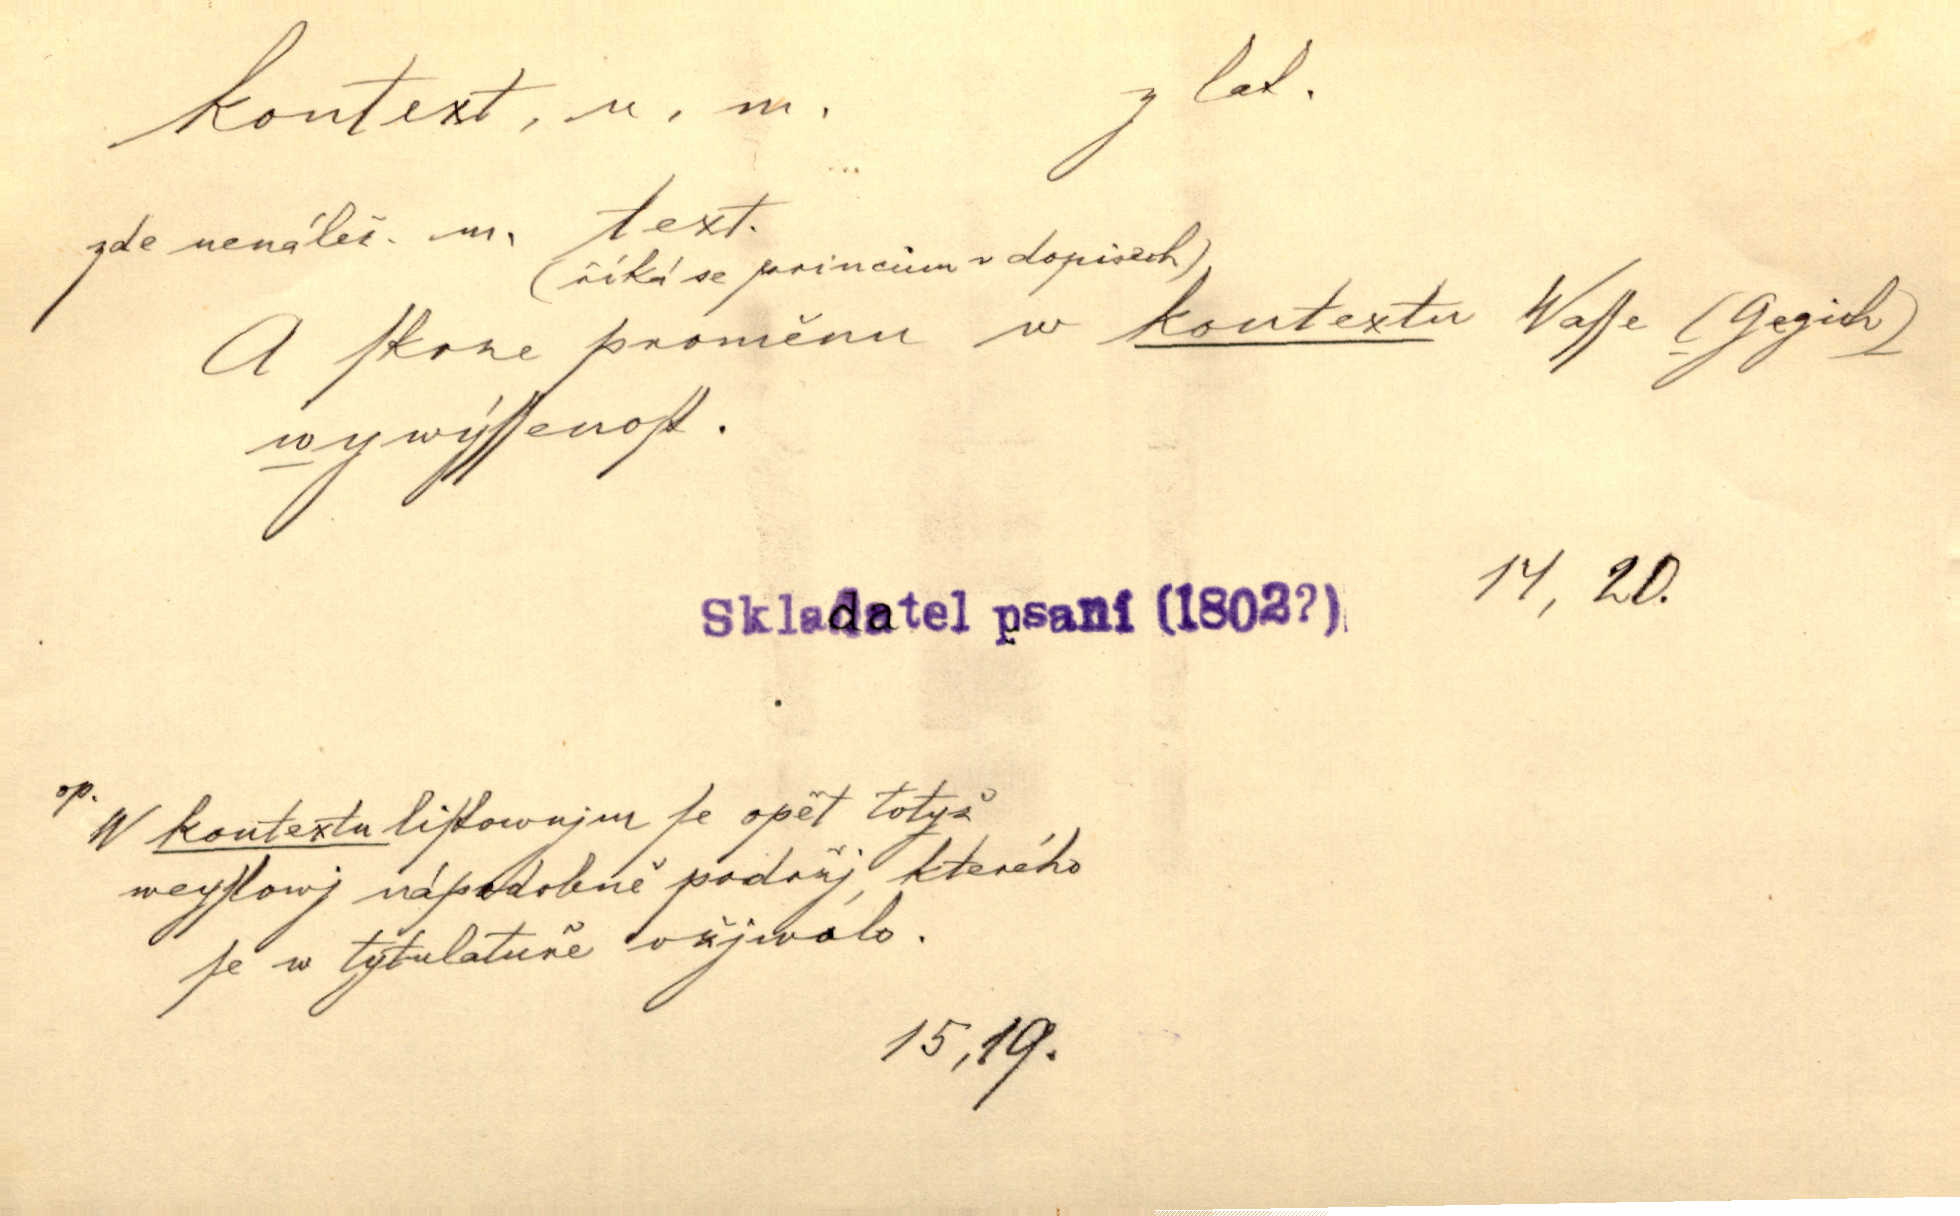 kontext, u, m. z lat.
zde nenálež. m. text.
(říká se princům v dopisech)
A skrze proměnu w kontextu Wasse (Gegich)
wywýssenost.
Skladatel psaní (1802?) 14, 20.
op.
W kontextu listownjm se opět totyž
weyslowj nápodobně podržj, kterého
se w tytulatuře vžjwalo.
15, 19.